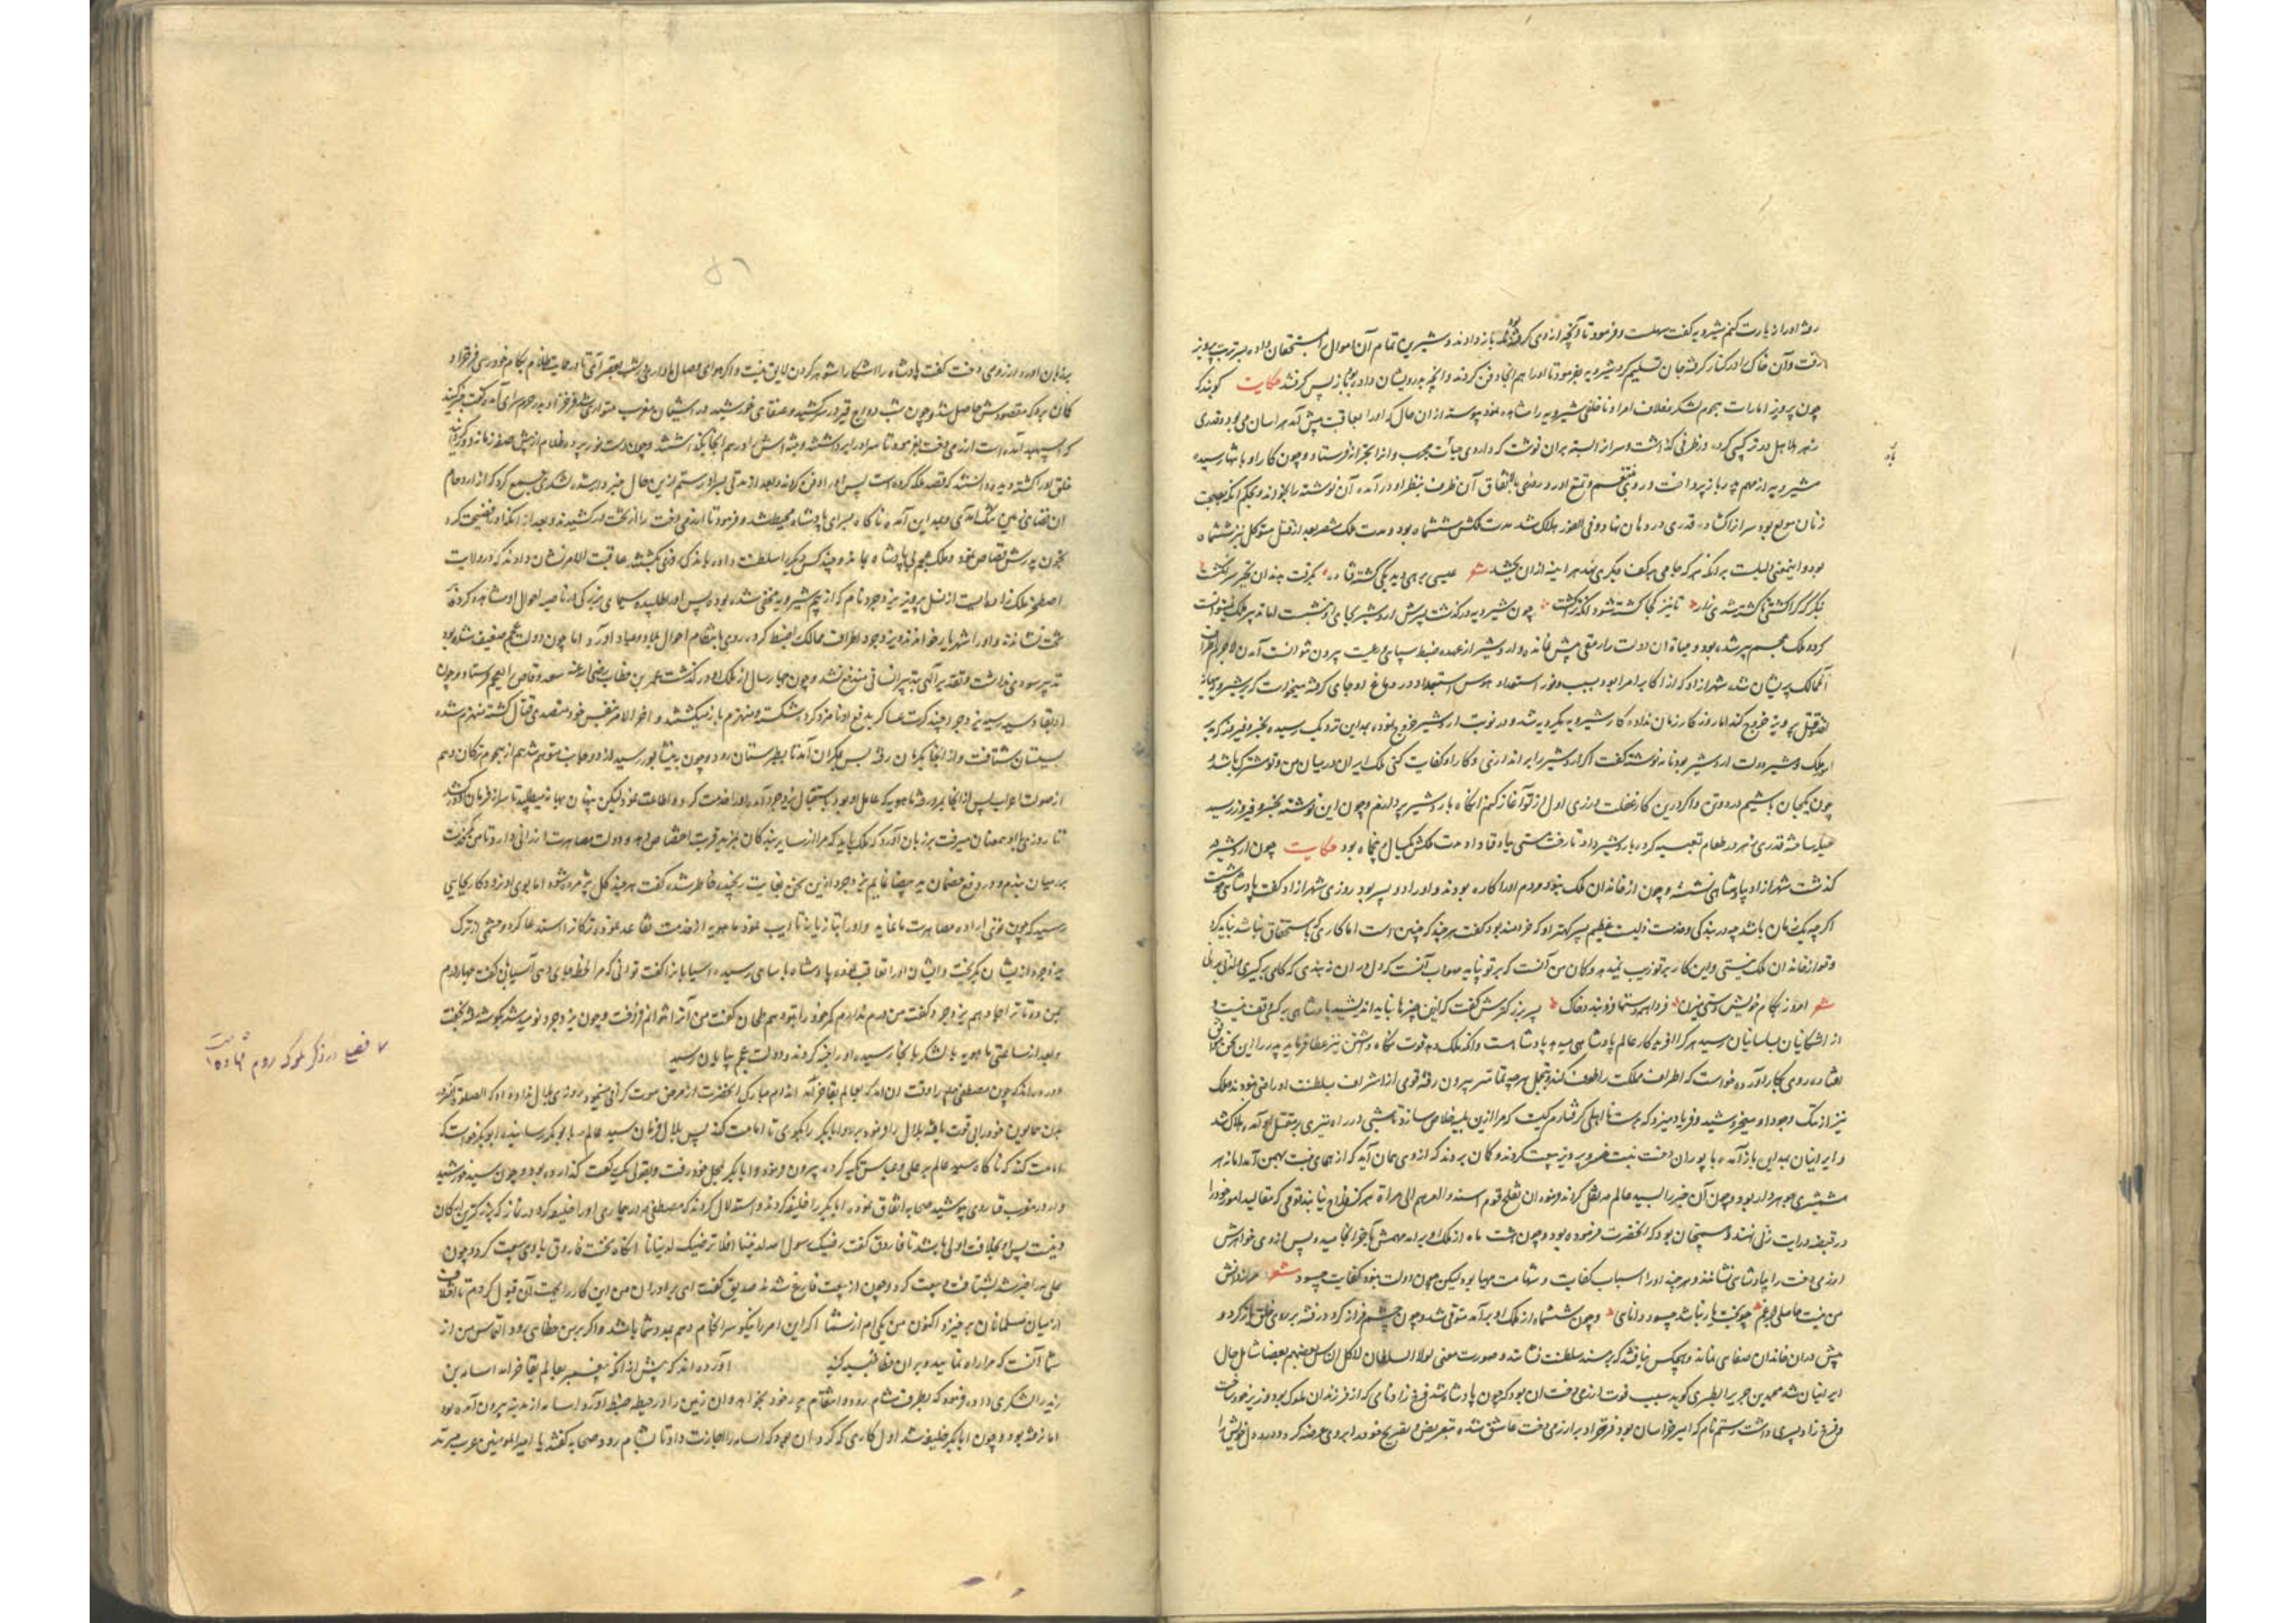 رفته او را زیارت کنم شیرویه گفت سهلست و فرمود تا آنچه از وی گرفته بود باز دادند و شیرین تمام آن اموال بمستحقان داده بر تربت پرویز
رفت و آن خاک را در کنار گرفته جان تسلیم کرد شیرویه بفرمود تا او را هم آنجا دفن کردند و آنچه بدرویشان داد بود باز پس گرفتند حکایت گویند که
چون پرویز امارات هجوم لشکر و خلاف امرا و ناخلفی شیرویه را مشاهده نمود پیوسته از آن حال که او را بعاقبت پیش آمد هراسان می بود و قدری
زهر هلاهل در ترکیبی کرده در ظرفی گذاشت و سر آن بسته بر آن نوشت که داروی مجرب و چون کار او بانتها رسیده
شیرویه از مهم پدر باز پرداخت و روی بتنعم و تمتع آورد روزی باتفاق آن ظرف بنظر او در آمد آن نوشته را بخواند و بحکم آنکه بصحبت
زنان مولع بود سر آن گشاده قدری در دهان نهاد و فی الفور هلاک شد مدت ملکش ششماه بود و مدت ملک منتصر بعد از قتل متوکل نیز ششماه
بود و اینمعنی دلیلست بر آنکه هر که جامی بر کف دیگری نهد هر آینه از آن بچشد شعر عیسی برهی دید یکی کشته فتاده بگرفت بدندان تحیر سر انگشت
گفتا که کرا کشتی تا کشته شدی زار تا نیز کجا کشته شود آنکه ترا کشت چون شیرویه درگذشت پسرش اردشیر بجای او بنشست اما تدبیر ملک نتوانست
کرد و ملک عجم پیر شده بود و حیات آن دولت را رمقی پیش نمانده و اردشیر از عهده ضبط سپاهی و رعیت بیرون نتوانست آمدن لاجرم اطراف
آن ممالک پریشان شد شهرآزاد که از اکابر امرا بود بسبب وفور استعداد هوس استبداد در دماغ او جای گرفته میخواست که بر شیرویه بهانه
قتل پرویز خروج کند اما روزگار زمان نداد و کار شیرویه یکرویه شد و در نوبت اردشیر خروج نموده بمداین نزدیک رسیده بخسرو فیروز که مدبر
امور ملک و مشیر دولت اردشیر بود نامه نوشته گفت اگر اردشیر را براندازی و کار او کفایت کنی ملک ایران در میان من و تو مشترک باشد و
چون یکجان باشیم در دو تن و اگر درین کار غفلت ورزی اول از تو آغاز کنم آنگاه باردشیر پردازم و چون این نوشته بخسرو فیروز رسید
حیله ساخته قدری زهر در طعام تعبیه کرده باردشیر داد تا رخت هستی بباد فنا داد مدت ملکش یکسال و پنجاه بود حکایت چون اردشیر در
گذشت شهرآزاد بپادشاهی نشست و چون از خاندان ملک نبود مردم او را کاره بودند و او را دو پسر بود روزی شهرآزاد گفت پادشاهی خوشست
اگر چه یکزمان باشد چه در بندگی و خدمت ذلیست عظیم پسر کهتر او که خردمند بود گفت هر چند که چنین است اما کاری که باستحقاق نباشد نباید کرد
و تو از خاندان ملک نیستی و این کار بر تو زیب نمیدهد و گمان من آنست که بر تو نپاید صواب آنست که دل در آن نبندی
شعر امروز بکام خویش دستی بزن فردا همه دستها فرو بندد خاک پسر بزرگترش گفت که این چیزها نباید اندیشید پادشاهی بر کسی وقف نیست و
از اشکانیان بساسانیان رسید هر کرا آفریدگار عالم پادشاهی میدهد پادشاهست و آنکه ملک دهد قوت نگاه داشتن نیز عطا فرماید پدر را این سخن موافق
افتاده روی بکار آورد و خواست که اطراف مملکت را طوف کند و بتجمل هر چه تمامتر بیرون رفته قومی از اشراف بسلطنت او راضی نبودند ملک
نیز از ننگ وجود او میخروشید و فریاد میزد که بدست نااهلی گرفتارم کیست که مرا ازین بلیه خلاص سازد تا شبی در راه تیری بر مقتل او آمده هلاک شد
و ایرانیان بمداین باز آمده با پوران دخت بنت خسرو پرویز بیعت کردند و گمان بردند که از وی همان آید که از همای بنت بهمن آمد اما نه هر
شمشیری جوهردار بود و چون آن خبر را بسید عالم صلعم نقل کردند فرمود لن تفلح قوم اسندوا امرهم الی امراة هرگز فلاح نیابند قومی که مقالید امور خود را
در قبضه درایت زنی نهند و همچنان بود که آنحضرت فرموده بود و چون هشت ماه از ملک او بر آمد مهمش بآخر انجامید و پس از وی خواهرش
آرزمی دخت را بپادشاهی نشاندند و هر چند او را اسباب کفایت و شهامت مهیا بود لیکن چون دولت نبود کفایت چسود شعر هر از دانش
من نیست حاصلی جز غم چو بخت یار نباشد چسود دانائی و چون ششماه از ملک او بر آمد متوفی شد و چون چشم فراز کرد در فتنه بر روی خلق باز کرد و
پیش در آن خاندان صفایی نماند و هیچکس نیافتند که بر مسند سلطنت نشانند و صورت معنی لولا السلطان لاکل الناس بعضهم بعضا شامل حال
ایرانیان شد محمد بن جریر الطبری گوید سبب فوت آرزمی دخت آن بود که چون پادشاه شد فرخ زاد نامی که از فرزندان ملوک بود وزیر خود ساخت
و فرخ زاد پسری داشت رستم نام که امیر خراسان بود فرخزاد بر آرزمی دخت عاشق شده بتعریض و تصریح خود را بر وی عرضه کرد و درد دل خویش را
بر زبان آورد آرزمی دخت گفت پادشاه را آشکارا شوهر کردن لایق نیست و اگر هوای وصال ما داری شب بقصر آی تا در حمایت ظلام بکام خود رسی فرخزاد
گمان برد که مقصودش حاصل شد و چون شب دواج قیر در سر کشید و عنقای خورشید در آشیان مغرب متواری شد فرخزاد بدر حرم سرای آمد و گفت خبر کنید
که اسپهبد آمده است آرزمی دخت بفرمود تا سر او را برداشتند و جثه اش را در هم آنجا بگذاشتند و چون دست نور پرده ظلام از پیش صفه زمانه برگرفت
خلق او را کشته دیده دانستند که قصد ملکه کرده است پس او را دفن کردند و بعد از مدتی پسر او رستم ازین حال خبردار شده لشکری جمع کرد که از ازدحام
آن فضای زمین تنگ آمدی و بمداین آمده ناگاه بسرای پادشاه محیط شد و فرمود تا آرزمی دخت را از تخت در کشیدند و بعد از آنکه او را فضیحت کرد
بخون پدرش قصاص نمود و ملک عجم بی پادشاه بماند و چند کس دیگر را سلطنت داده باندک زمانی بکشتند عاقبت الامر نشان دادند که در ولایت
اصطخر ملک زاده ایست از نسل پرویز یزدجرد نام که از بیم شیرویه مخفی شده بود پس او را طلبیده سیمای بزرگی از ناصیه احوال او مشاهده کرده بر
تخت نشاندند و او را شهریار خواندند و یزدجرد اطراف ممالک را ضبط کرده روی بانتظام احوال بلاد و عباد آورد اما چون دولت عجم ضعیف شده بود
تدبیر سودی نداشت و تقدیر آلهی بتدبیر انسانی مندفع نشد و چون چهار سال از ملک او در گذشت عمر بن خطاب رضی الله عنه سعد وقاص را بعجم فرستاد و چون
او بقادسیه رسید یزدجرد چند کرت عساکر بدفع او نامزد کرد شکسته و منهزم باز میگشتند و آخر الامر بنفس خود متصدی قتال گشته منهزم شده
بسیستان شتافت و از آنجا بکرمان رفته پس بمکران آمد تا بطبرستان رود و چون بنیشابور رسید از دو جانب متوهم شد هم از هجوم ترکان و هم
از صولت اعراب پس از آنجا بمرو رفته ماهویه که عامل او بود باستقبال یزدجرد آمده او را خدمت کرد و اطاعت نمود لیکن پنهان بهانه میطلبید تا سر از فرمان او در کشد
تا روزی با او همعنان میرفت بر زبان آورد که ملک باید که مرا از سایر بندگان بمزید قربت اختصاص دهد و دولت مصاهرت ارزانی دارد تا من کمر خدمت
بر میان بندم و در دفع خصمان ید بیضا نمایم یزدجرد ازین سخن بغایت رنجیده خاطر شده گفت هر چند گل پژمرده شود اما بوی او نرود و کار بجایی
رسید که چون توئی اراده مصاهرت ما نماید و او را بتازیانه تادیب نمود ماهویه از خدمت تقاعد نموده ترکانرا استدعا کرد و حشمی از ترک
یزدجرد از ایشان بگریخت و ایشان او را تعاقب نموده پادشاه باسیایی رسیده آسیابانرا گفت توانی که مرا لحظه جای دهی آسیابان گفت چهار درم
بمن ده تا ترا جا دهم یزدجرد گفت من درم ندارم کمر خود را بتو دهم طحان گفت من آنرا نتوانم فروخت و چون یزدجرد نومید شد بگوشه شده بخفت
و بعد از ساعتی ماهویه با لشکر بآنجا رسیده او را خبه کردند و دولت عجم بپایان رسید
آورده اند که چون مصطفی صلعم را وقت آن آمد که بعالم بقا خرامد اندام مبارک آنحضرت از مرض صورت گرانی میجود روزی بلال ندا داد که الصلوة آنحضرت
چون همایون خود را بی قوت یافته بلال را فرمود برو و ابابکر را بگوی تا امامت کند پس بلال فرمان سید عالم را بابوبکر رسانیده ابوبکر خواست که
امامت کند که ناگاه سید عالم بر علی و عباس تکیه کرده بیرون فرمود و ابابکر بمحل خود رفت و بقولی یک رکعت گذارده بود و چون سید خورشید
وار در مغرب فنا روی بپوشید صحابه اتفاق نموده ابابکر را خلیفه کردند و استدلال کردند که مصطفی در بیماری او را خلیفه کرد در نماز که بزرگترین ارکان
دینست پس او بخلافت اولی باشد تا فاروق گفت رضیک رسول الله لدیننا افلا نرضیک لدنیانا آنگاه نخست فاروق با وی بیعت کرد و چون
علی را خبر شد بشتافت و بیعت کرد و چون از بیعت فارغ شدند صدیق گفت ای برادران من این کار را بجهت آن قبول کردم تا خلاف
از میان مسلمانان برخیزد اکنون من یکی ام از شما اگر این امر را نیکو سر انجام دهم مدد شما باشد و اگر بر من خطایی رود التماس من از
شما آنست که مرا راه نمایید و بر آن خطا تنبیه کنید آورده اند که پیش از آنکه پیغمبر بعالم بقا خرامد اسامه بن
زید را لشکری داده فرمود که بطرف شام رود و انتقام پدر خود بخواهد و آن زمین را در حیطه ضبط آورد اسامه از مدینه بیرون آمده بود
اما نرفته بود و چون ابابکر خلیفه شد اول کاری که کرد آن بود که اسامه را اجازت داد تا بشام رود صحابه گفتند یا امیر المومنین عرب مرتد